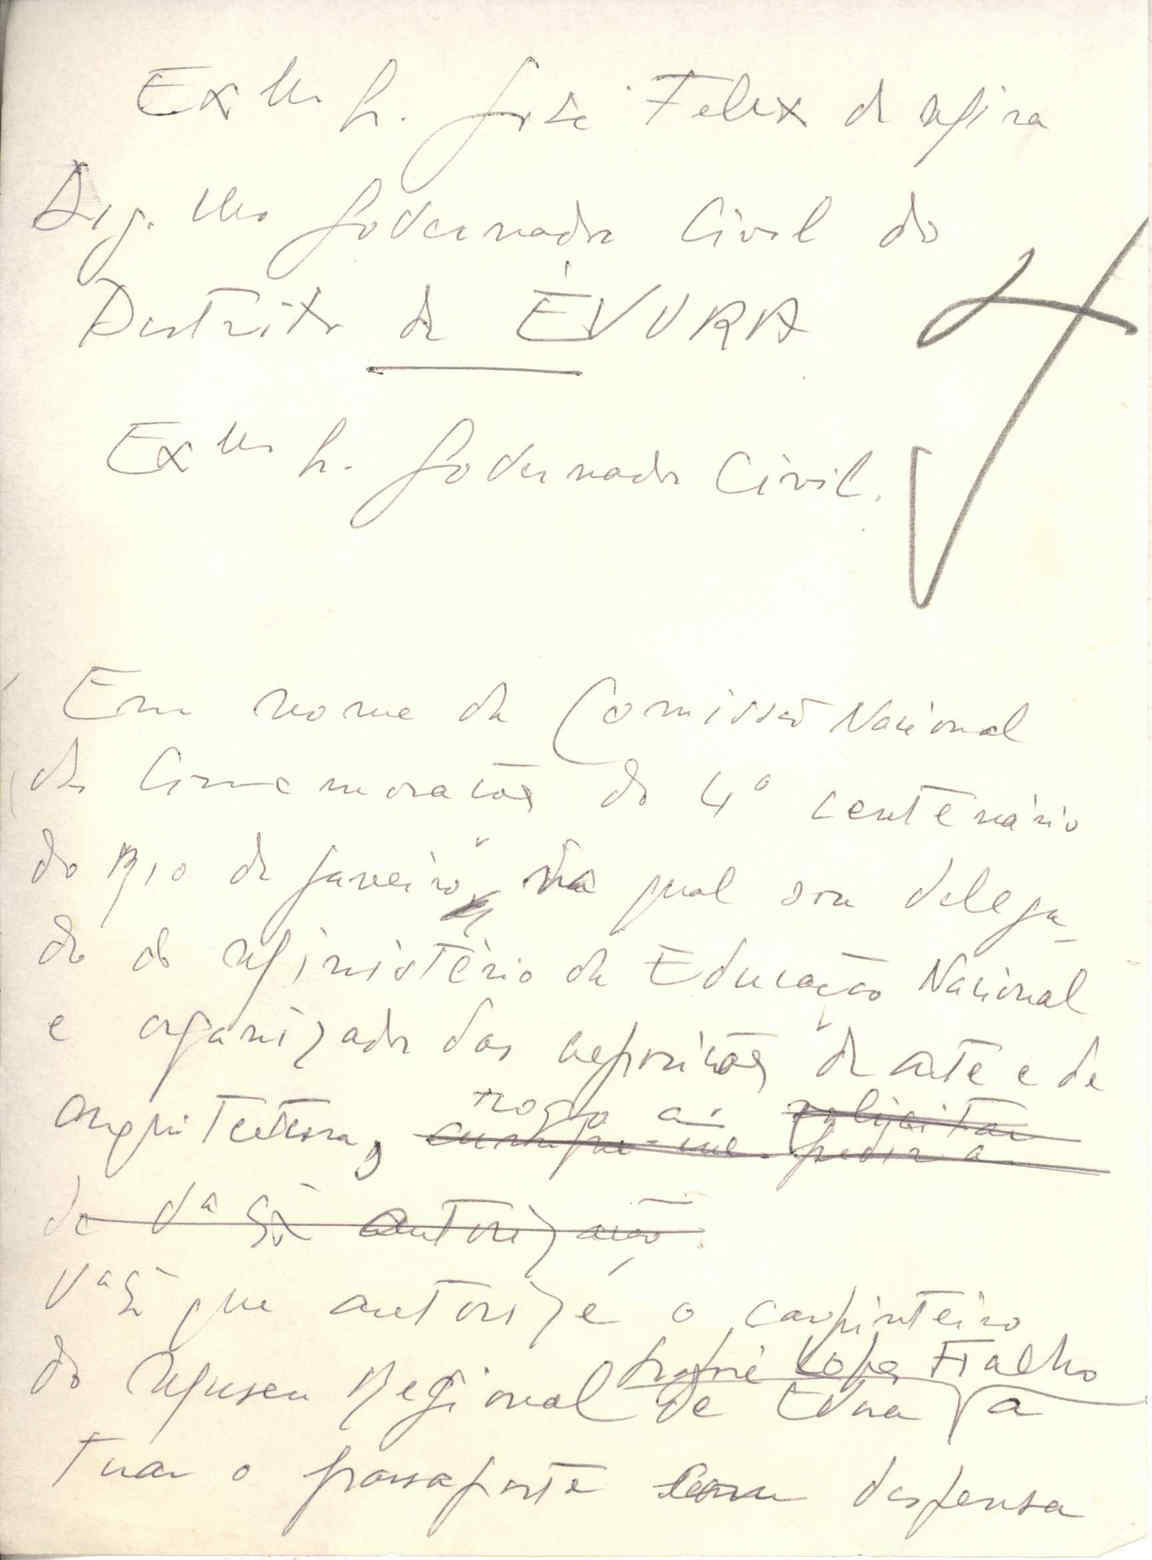 Ex.mo Sr. José Felix de Mira
Dig.mo Governador Civil do
Distrito de ÉVORA
Ex.mo Sr. Governador Civil.
Em nome da Comissão Nacional
das Comemorações do 4º centenário
do Rio de Janeiro, na qual sou delega-
do do Ministério da Educação Nacional
e organizador das exposições de arte e de
arquitectura, cumpre-me pedir a
rogo a solicitar
de Vª Exª autorização.
Vª Exª que autorize o carpinteiro
José Lopes Fialho
do Museu Regional de Évora a
tirar o passaporte com dispensa